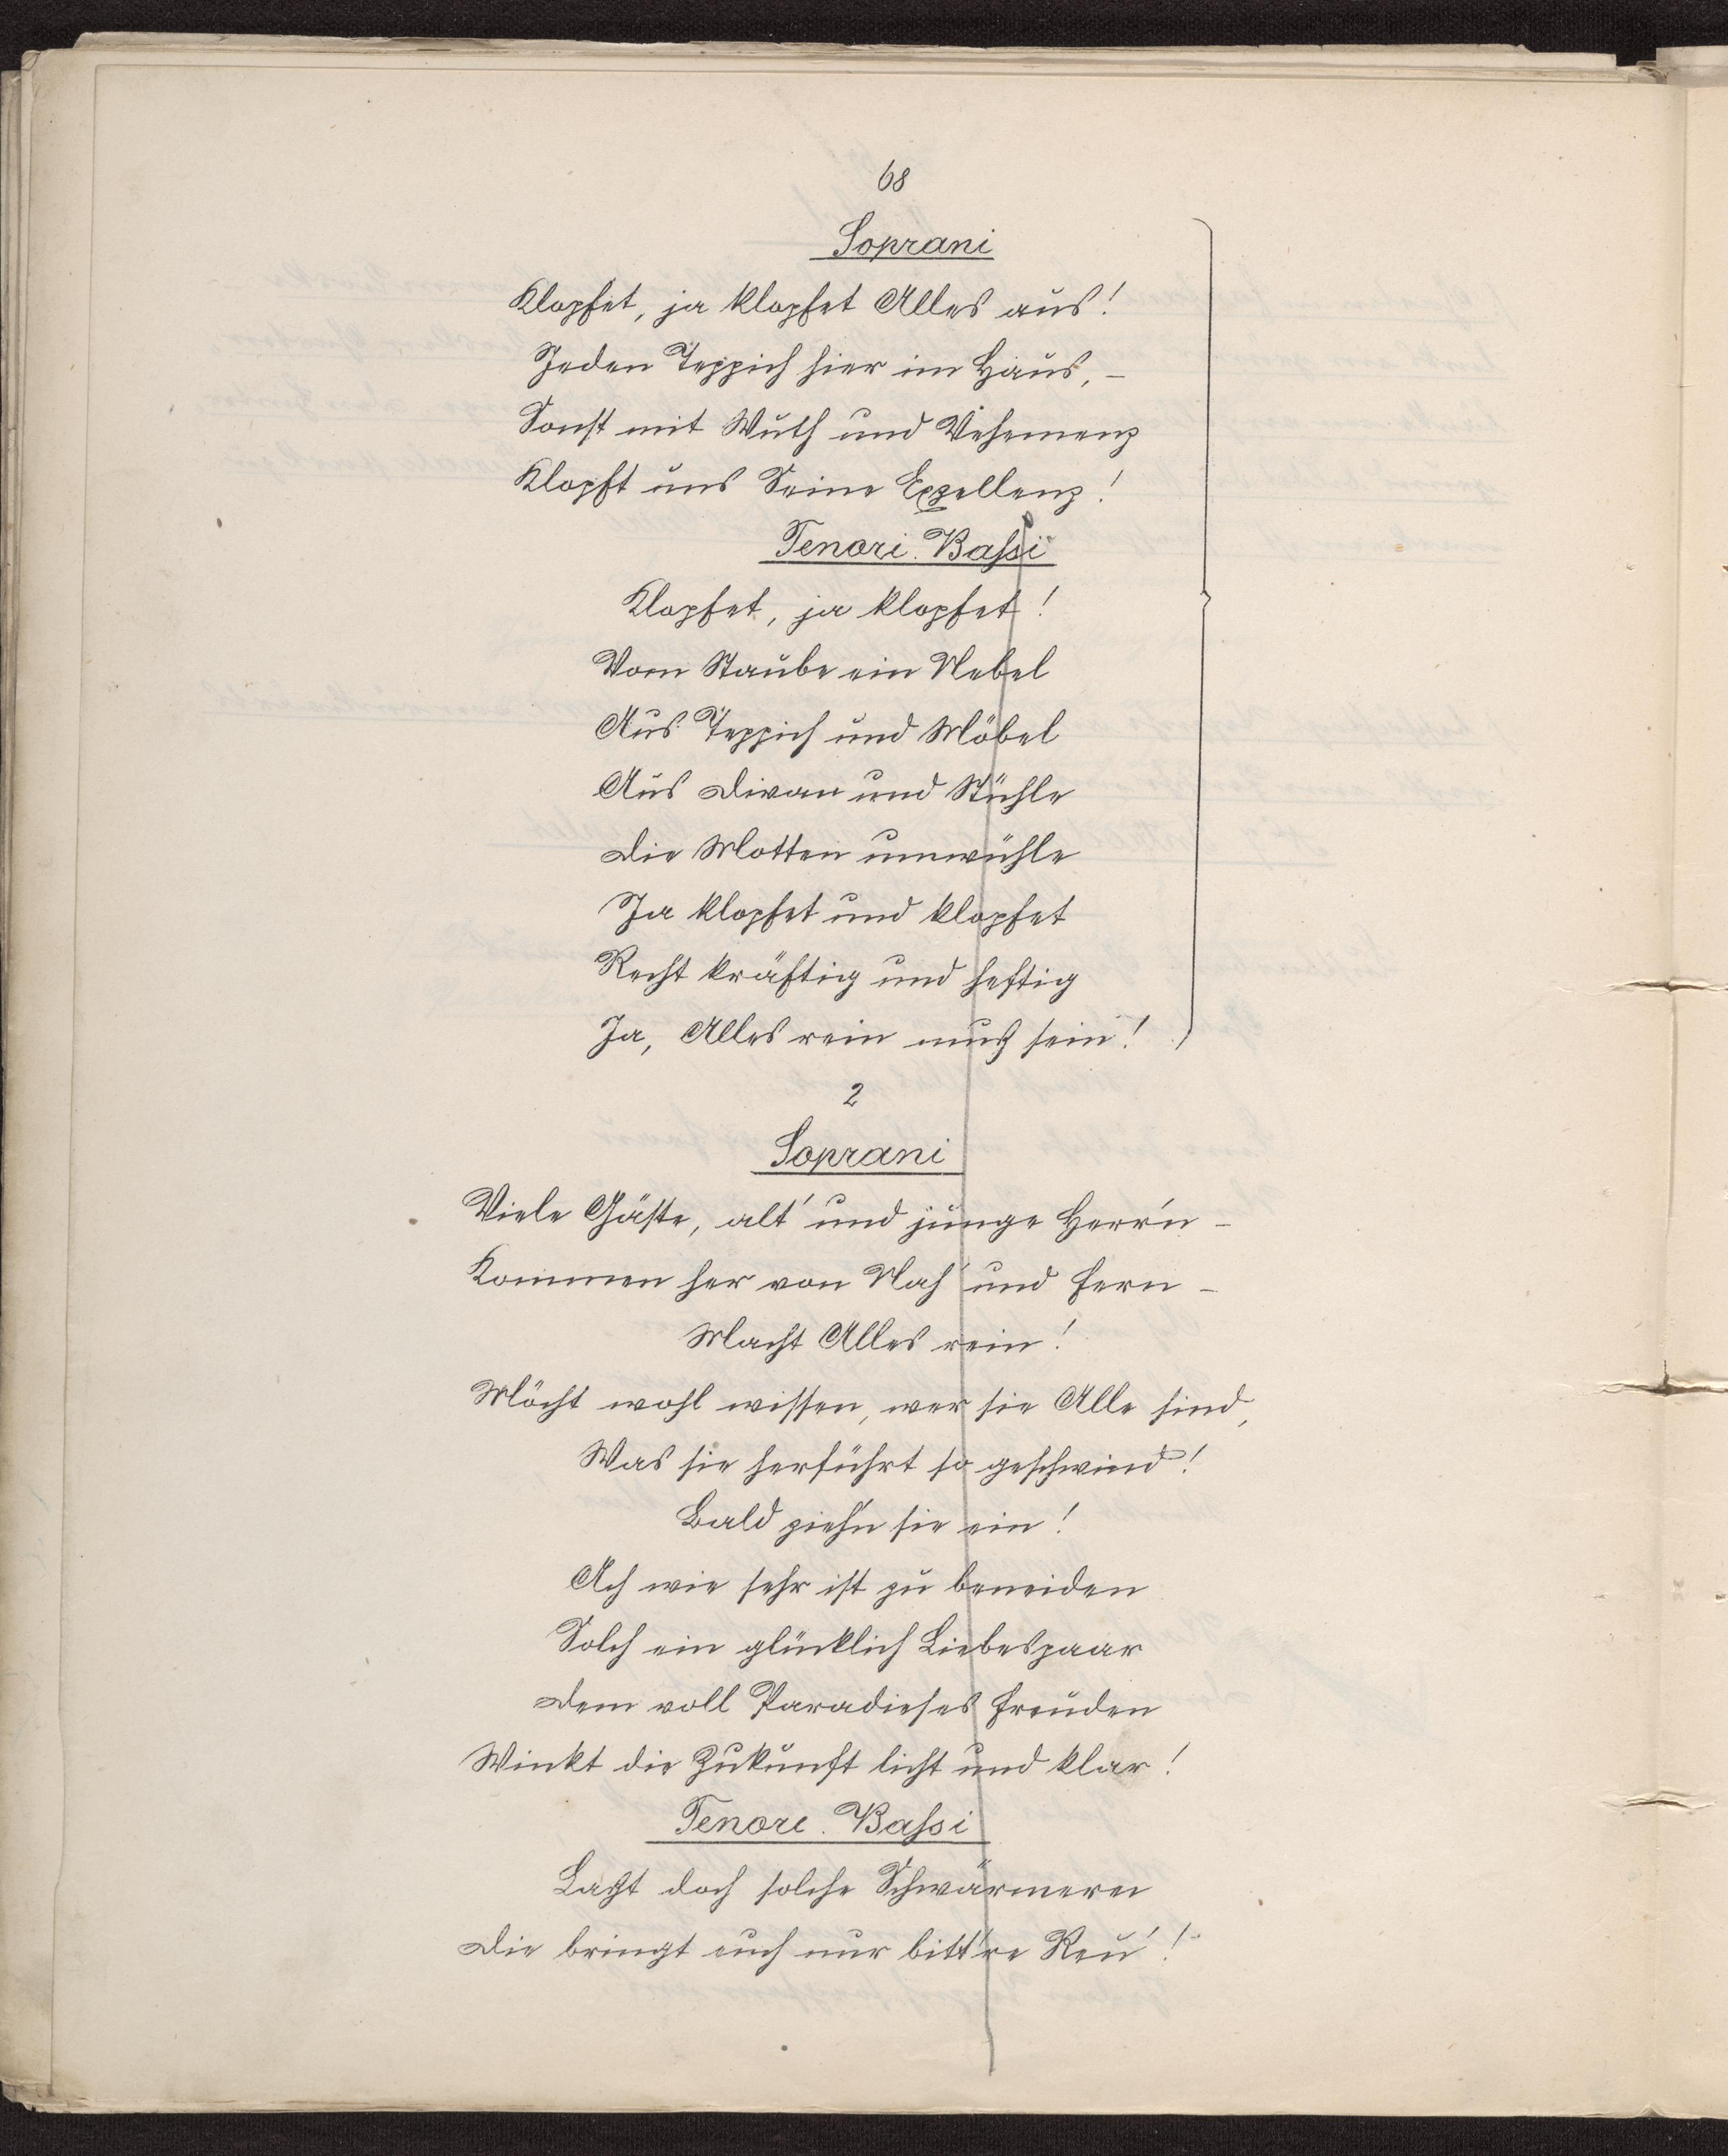 68
Soprani
Klopfet, ja klopfet Alles aus!
Jeden Teppich hier im Haus, –
Sonst mit Wuth und Vehemenz
Klopft uns Seine Exzellenz!
Tenori. Bassi
Klopfet, ja klopfet!
Vom Staube ein Nebel
Aus Teppich und Möbel
Aus Divan und Stühle
Die Motten umwühle
Ja klopfet und klopfet
Recht kräftig und heftig
Ja, Alles rein muß sein!
2
Soprani
Viele Gäste, alt' und junge Herr'n –
Kommen her von Nah' und Fern –
Macht Alles rein!
Möcht wohl wissen, wer sie Alle sind,
Was sie herführt so geschwind!
Bald zieh'n sie ein!
Ach wie sehr ist zu beneiden
Solch ein glücklich Liebespaar
Dem voll Paradieses Freuden
Winkt die Zukunft licht und klar!
Tenore. Bassi
Laßt doch solche Schwärmerei
Die bringt euch nur bitt're Reu'!